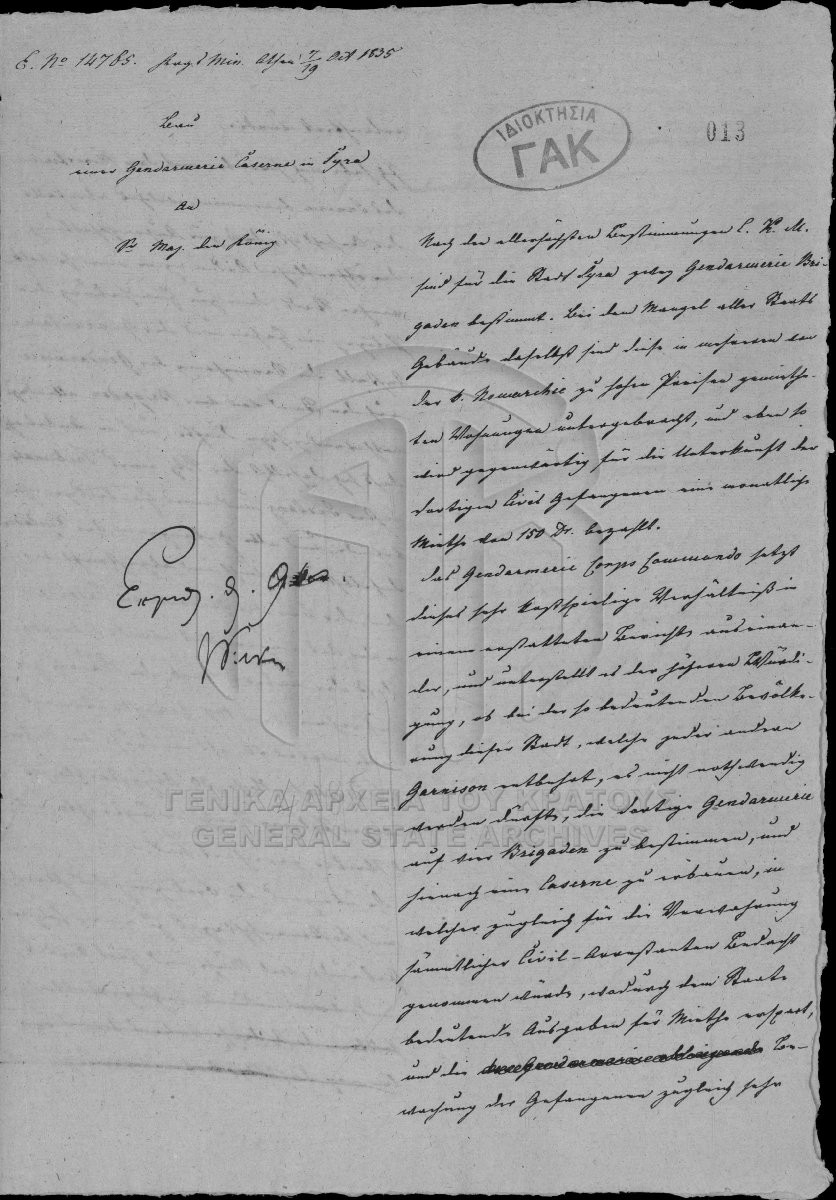 E. No 14785. Krgs Min. Athen 7/19 Oct 1835
Bau
einer Gendarmerie Caserne in Syra
An
Se Maj. den König
ΙΔΙΟΚΤΗΣΙΑ
ΓΑΚ
013
Nach den allerhöchsten Bestimmungen E. K. M.
sind für die Stadt Syra zwey Gendarmerie Bri-
gaden bestimmt. Bei dem Mangel aller Staats
Gebäude daselbst sind diese in mehreren von
der k. Nomarchie zu hohen Preisen gemiethe-
ten Wohnungen untergebracht, und eben so
wird gegenwärtig für die Unterkunft der
dortigen Civil Gefangenen eine monatliche
Miethe von 150 Dr. bezahlt.
Das Gendarmerie Corps Commando setzt
dieses sehr kostspielige Verhältniß in
einem erstatteten Berichte auseinan-
der, und unterstellt es der höheren Würdi-
gung, ob bei der so bedeutenden Bevölke-
rung dieser Stadt, welche jeder andern
Garnison entbehrt, es nicht nothwendig
werden dürfte, die dortige Gendarmerie
auf vier Brigaden zu bestimmen, und
hienach eine Caserne zu erbauen, in
welcher zugleich für die Verwahrung
sämmtlicher Civil-Arrestanten Bedacht
genommen würde, wodurch dem Staate
bedeutende Ausgaben für Miethe erspart,
und die Be-
wachung der Gefangenen zugleich sehr
ΓΕΝΙΚΑ ΑΡΧΕΙΑ ΤΟΥ ΚΡΑΤΟΥΣ
GENERAL STATE ARCHIVES